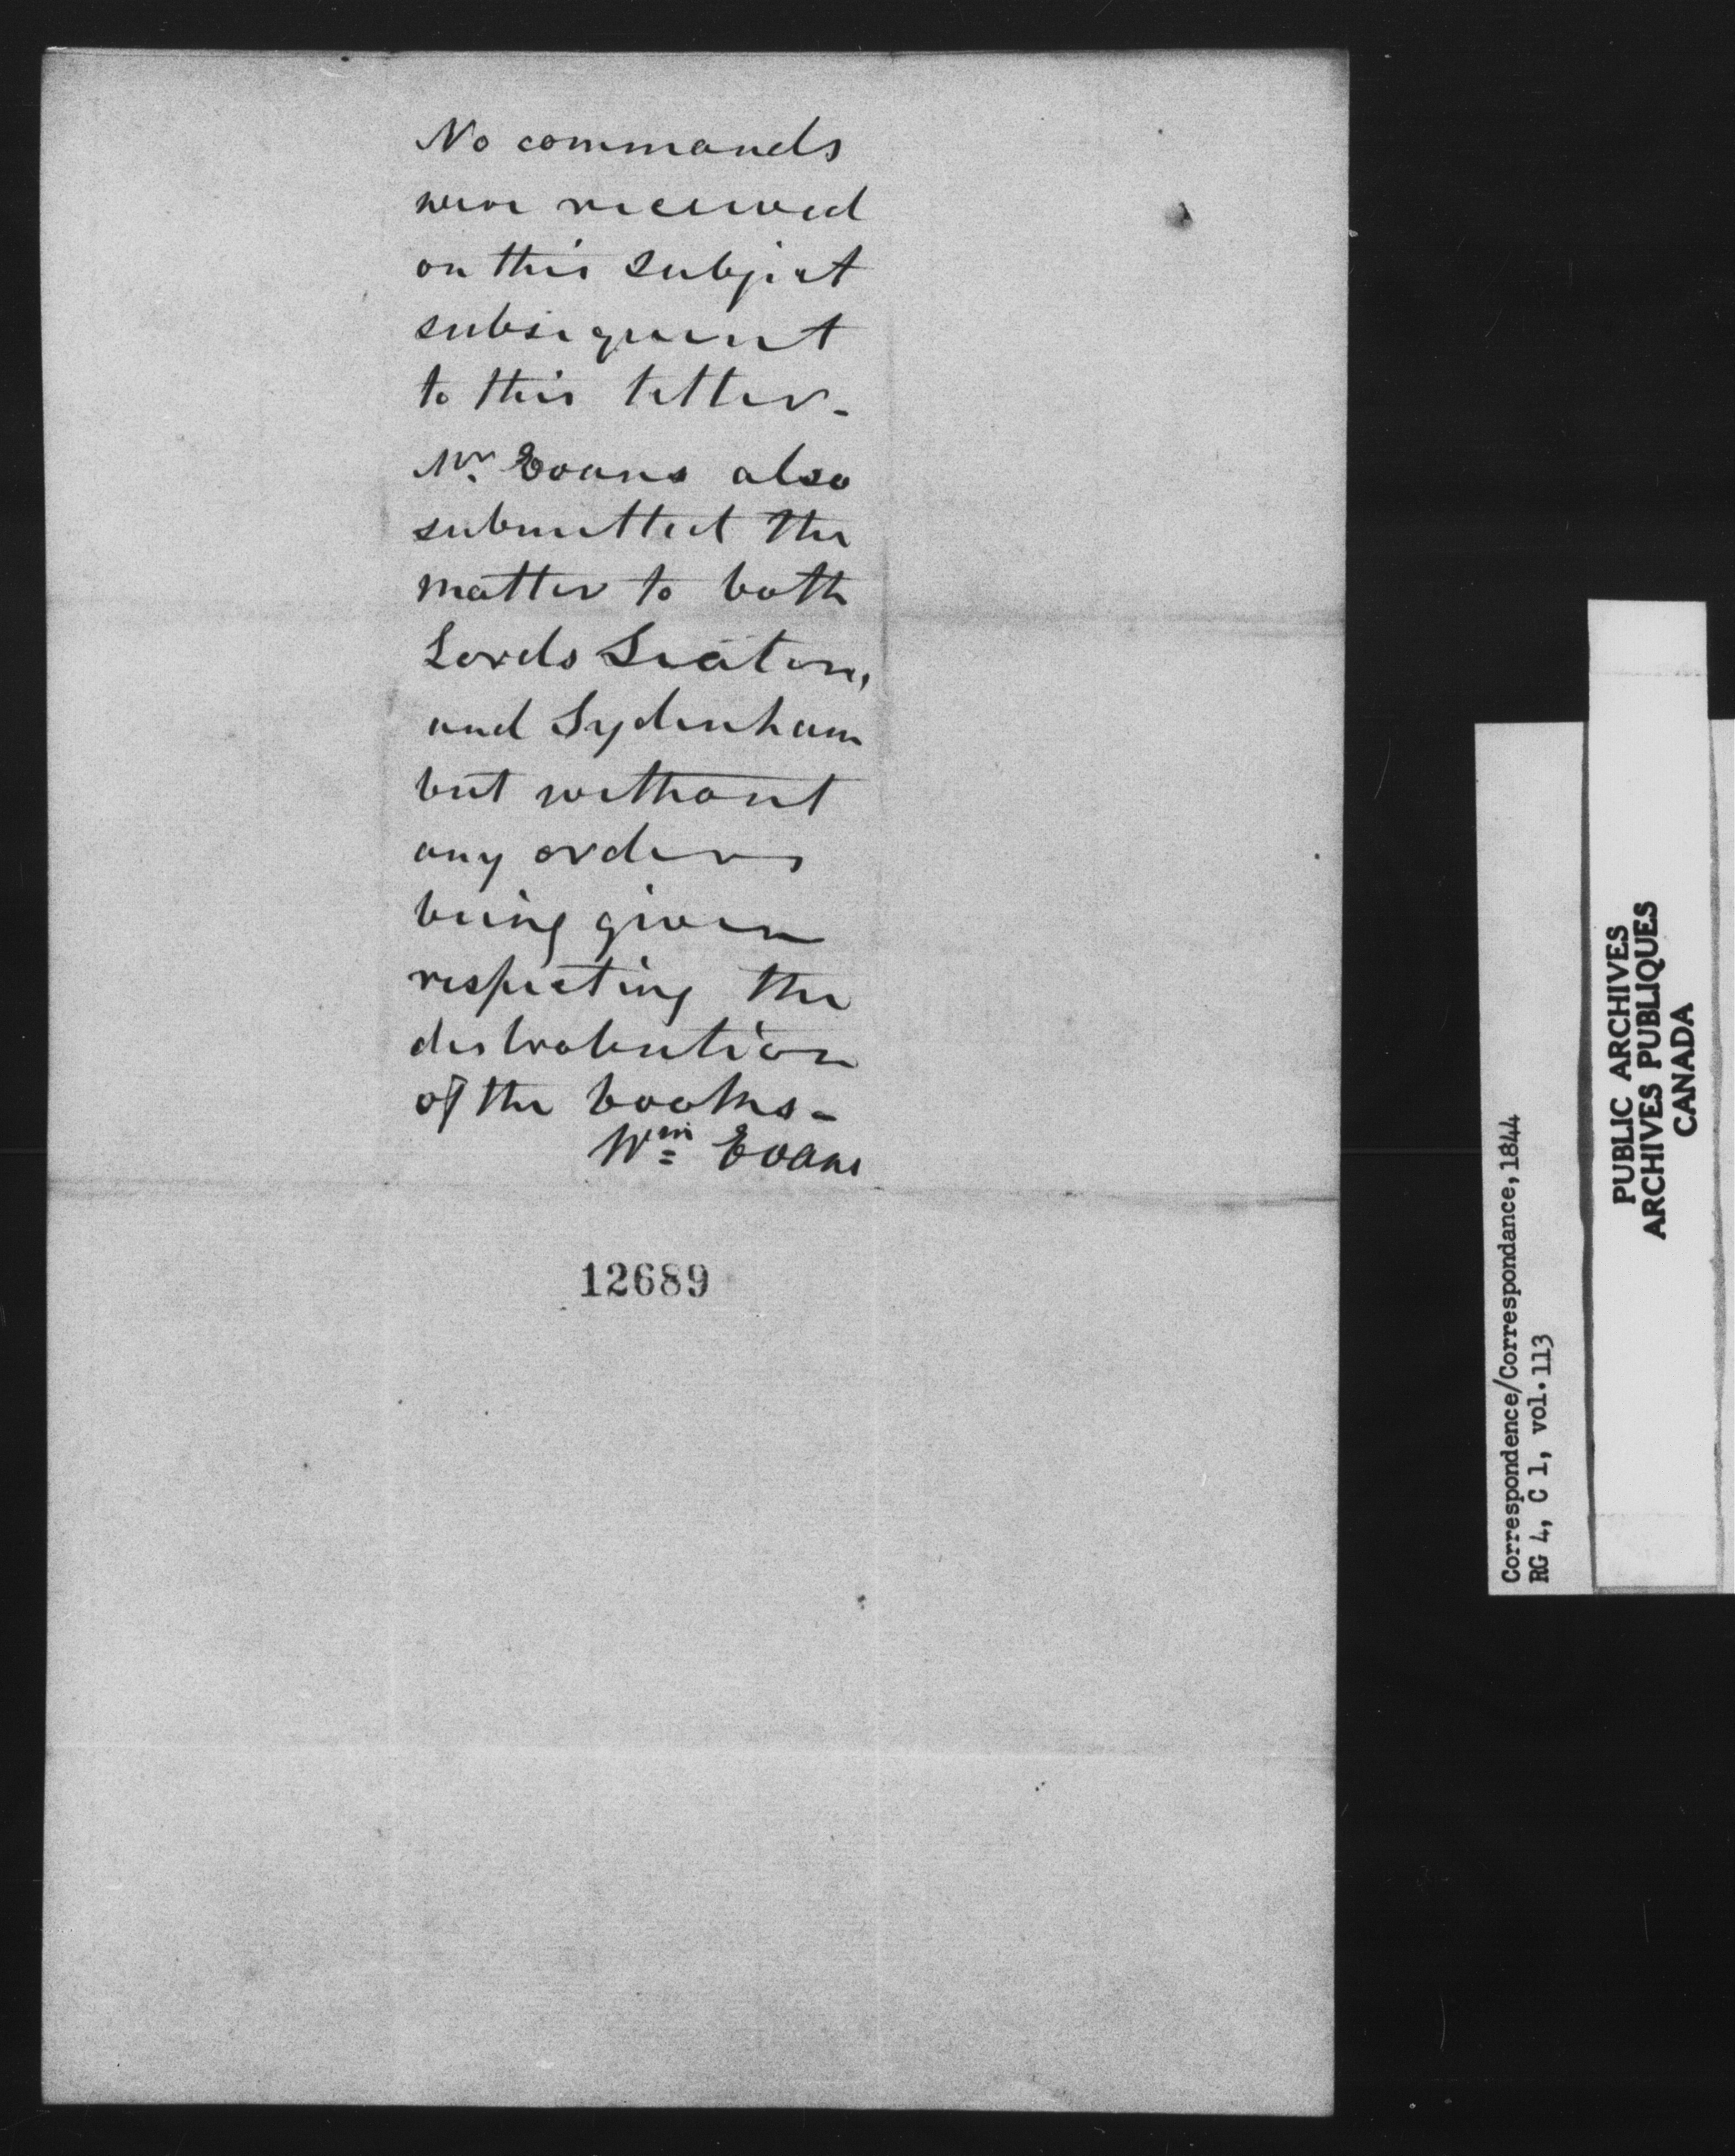 No commands
were received
on this subject
subsequent
to this letter -
Mr. Evans also
submitted the
matter to both
Lords Seaton,
and Sydenham
but without
any orders
being given
respecting the
distribution
of the books -
Wm Evans
12689
Correspondence/Correspondance, 1844
RG 4, C 1, vol. 113
PUBLIC ARCHIVES
ARCHIVES PUBLIQUES
CANADA